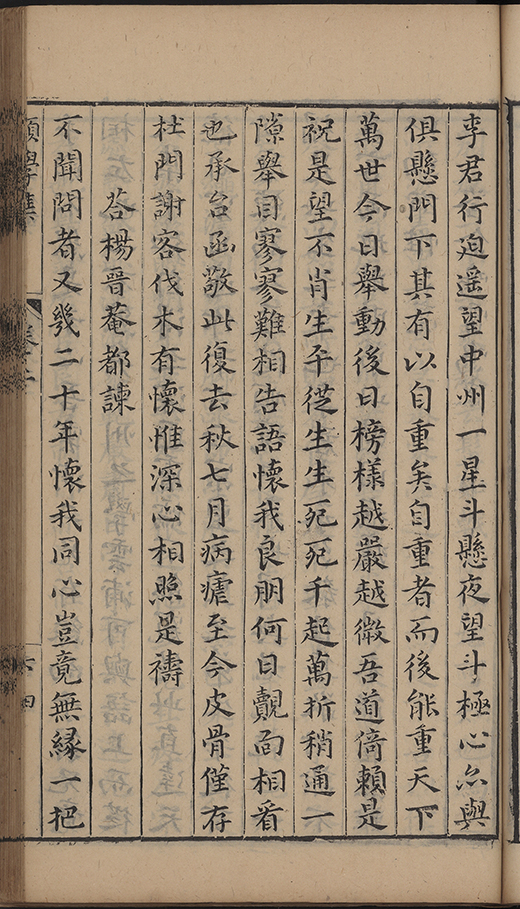 李君行迫遥望中州一星斗懸夜望斗極心亦與
俱懸門下其有以自重矣自重者而後能重天下
萬世今日舉動後日榜樣越嚴越微吾道倚賴是
祝是望不肖生平從生生死死千起萬折稍通一
隙舉目寥寥難相告語懷我良朋何日觀面相看
也承台函敬此復去秋七月病瘧至今皮骨僅存
杜門謝客伐木有懷惟深心相照是禱
荅楊晉菴都諫
不聞問者又幾二十年懷我同心豈竟無緣一把
願學集
卷之二
六四